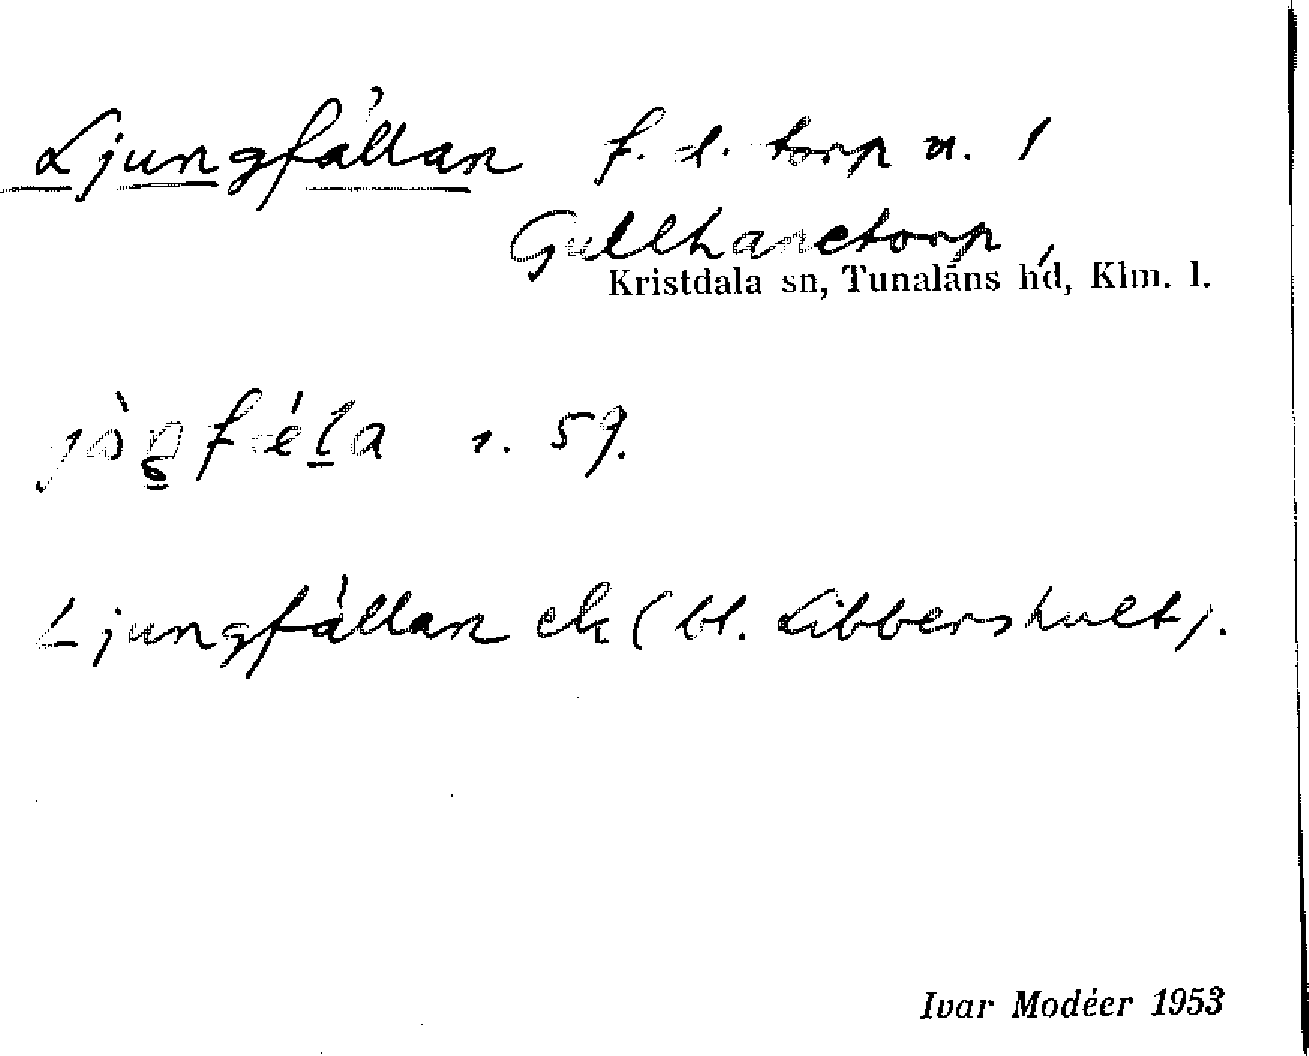 Ljungfällan f. d. torp u. 1
Gullhanetorp,
Kristdala sn, Tunaläns hd, Klm. l.
s. 59.
Ljungfällan ek (bl. Libbershult).
Ivar Modéer 1953